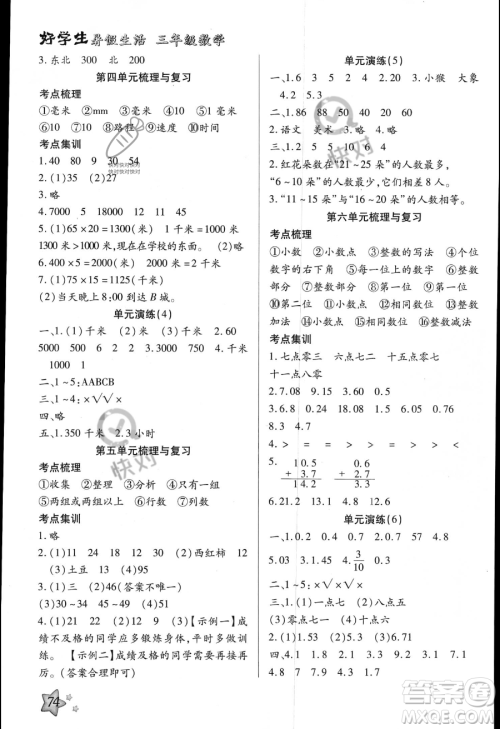 好学生暑假生活 三年级数学
3.东北 300 北 200
第四单元梳理与复习
考点梳理
①毫米 ②mm ③毫米 ④毫米 ⑤千米
⑥10 ⑦10 ⑧路程 ⑨速度 ⑩时间
考点集训
1.40 80 9 30 54
2.(1)35 (2)27
3.略
4.7000 5 5000 18
5.(1)65×20=1300(米) 1千米=1000米
1300>1000,现在在学校的东边。
6.400×5=2000(米)
7.(1)75×15=1125(千米)
(2)当天晚上8:00到达B城。
单元演练(4)
一、1.(1)千米 (2)千米 2.24 60
5000 500 15 7 3.略 4.8000
1000
二、1~5:AABCB
三、1~5:×√√×√
四、略
五、1.350千米 2.3小时
第五单元梳理与复习
考点梳理
①收集 ②整理 ③分析 ④只有一组
⑤两组或两组以上 ⑥行数 ⑦列数
考点集训
1.略
2.(1)11 24 18 13 (2)西红柿
(3)土豆 (4)15
3.(1)24 62 (答案不唯一)
4.(1)29 16 (2)【示例一】成
绩不及格的同学应多锻炼身体,平时多做
训练。
【示例二】成绩及格的同学需要再接再
厉。(答案合理即可)
74
单元演练(5)
一、1.6 3 8 2.5 35 3.小猴 大象
4.2 5
二、1~5:×××√√
三、1.略
2.语文 美术 3.略
四、1.3 2 5 5 10 4 6
2.红花朵数在“21~25朵”的人数最多。
“6~10朵”的人数最少,相差8人。
3.“11~15朵”的人数比较多。
第六单元梳理与复习
考点梳理
①小数 ②小数点 ③整数的写法 ④个位
数字的右下角 ⑤整数 ⑥小数点 ⑦整数
部分 ⑧大 ⑨整数部分 ⑩十分位
⑪十分位 ⑫大 ⑬小数点 ⑭整数
加法 ⑮相同数位 ⑯整数减法
考点集训
1.七点零三 六点七二 十五点零七
十一点八零
2.7.08 9.18 15.2 0.59
3.6.8 4.9 1.8 9.1 6.2
8.3 4.7
4.> > = > < >
5. 10.5
+ 3.7
13.2
6.21.2 13.8 5.2 2.8
单元演练(6)
一、1.0.9 0.7 2.1.9 0.36
3.5.03 4.3/10 0.3
二、1~5:×√√××
三、1.(1)一点二 (2)八点五
(3)零点一 (4)一点六
2.1.2 0.3 0.6 1.6
3.> < > < > =
4.8.2 9.4 7.9 4.9 2.7